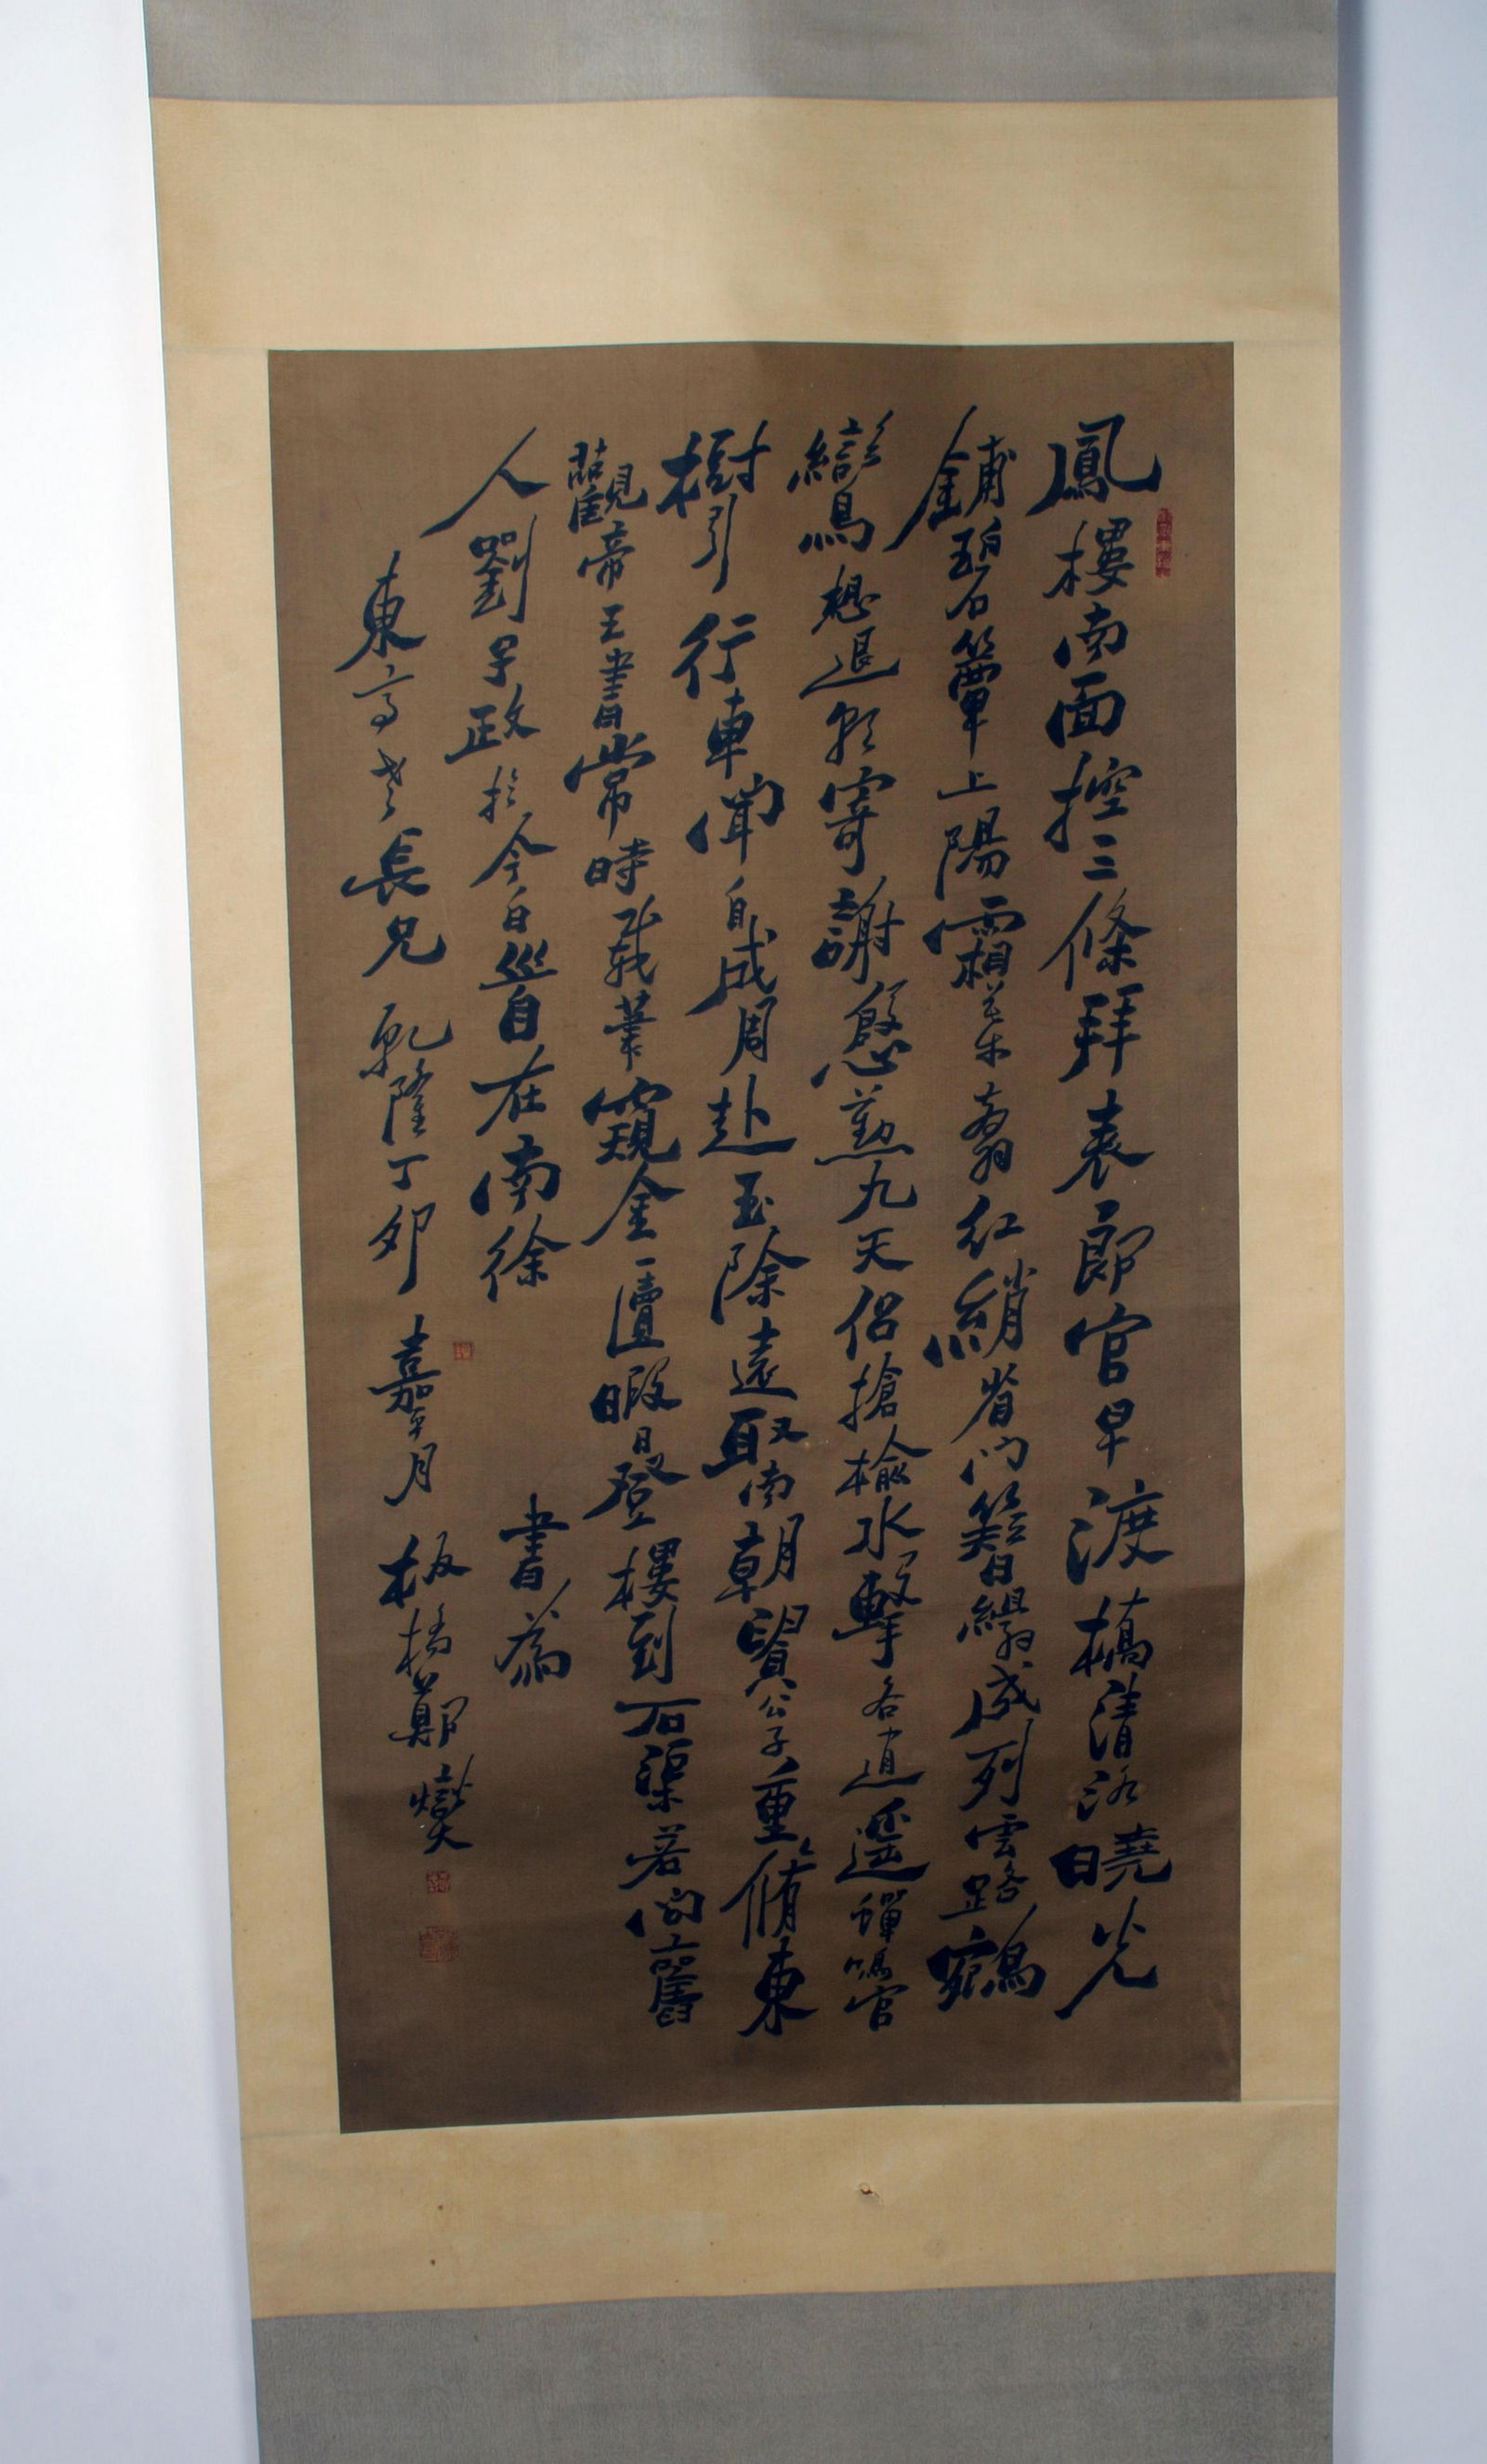 鳳樓南面控三條拜表郎官早渡橋清洛曉光
鋪碧簟上陽霜葉剪紅綃省門簪組成列雲路鵷
鸞想退朝寄謝殷勤九天侶搶榆水擊各逍遥蟬鳴官
樹引行車聞自成周赴玉除遠取南朝貴公子重脩東
觀帝王書常時載筆窺金匱暇日登樓到石渠若問舊
人劉子政於今白首在南徐
書為
東高老長兄 乾隆丁卯嘉平月 板橋鄭燮